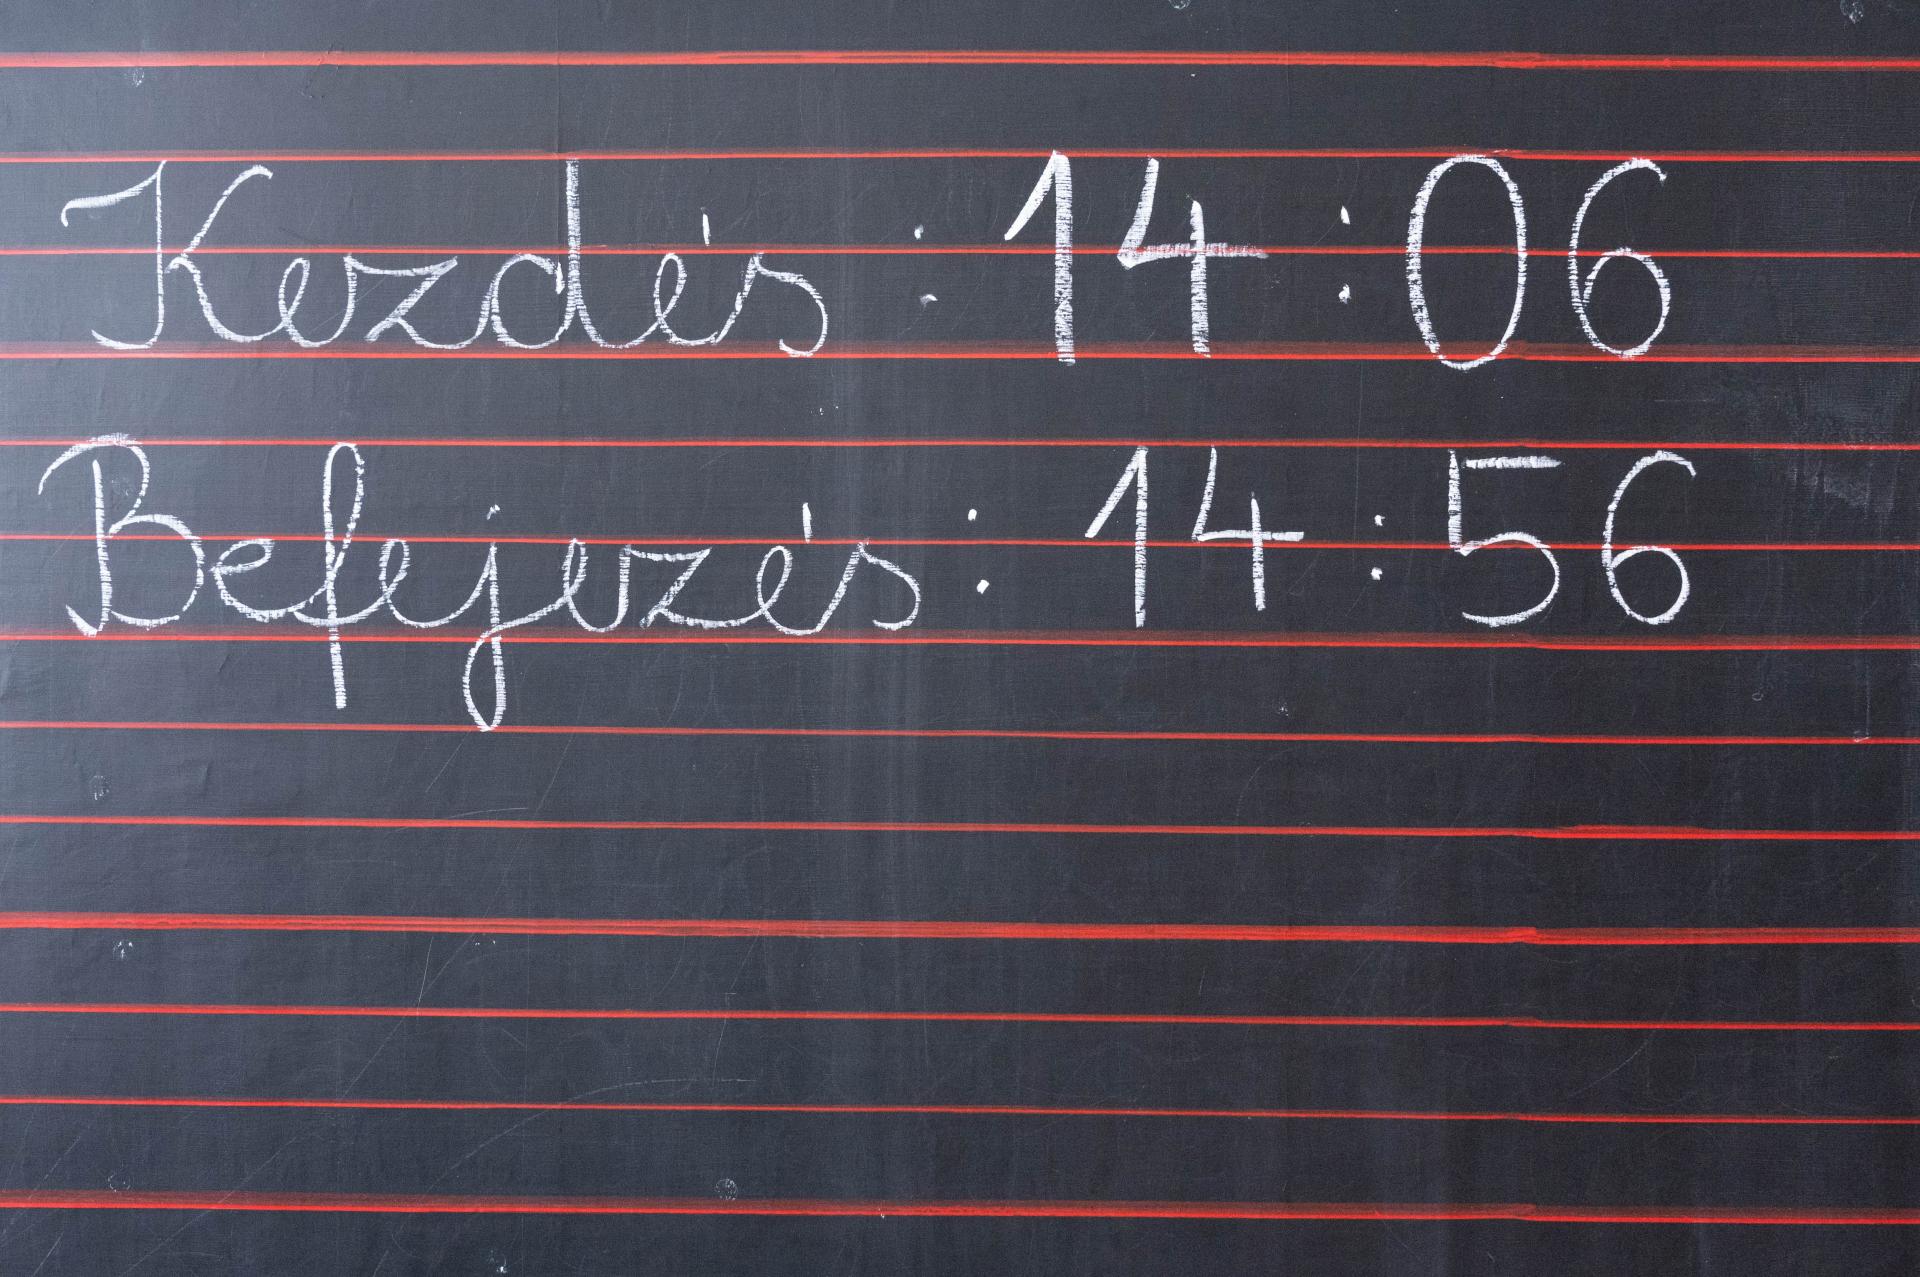 Kezdés : 14:06
Befejezés: 14:56